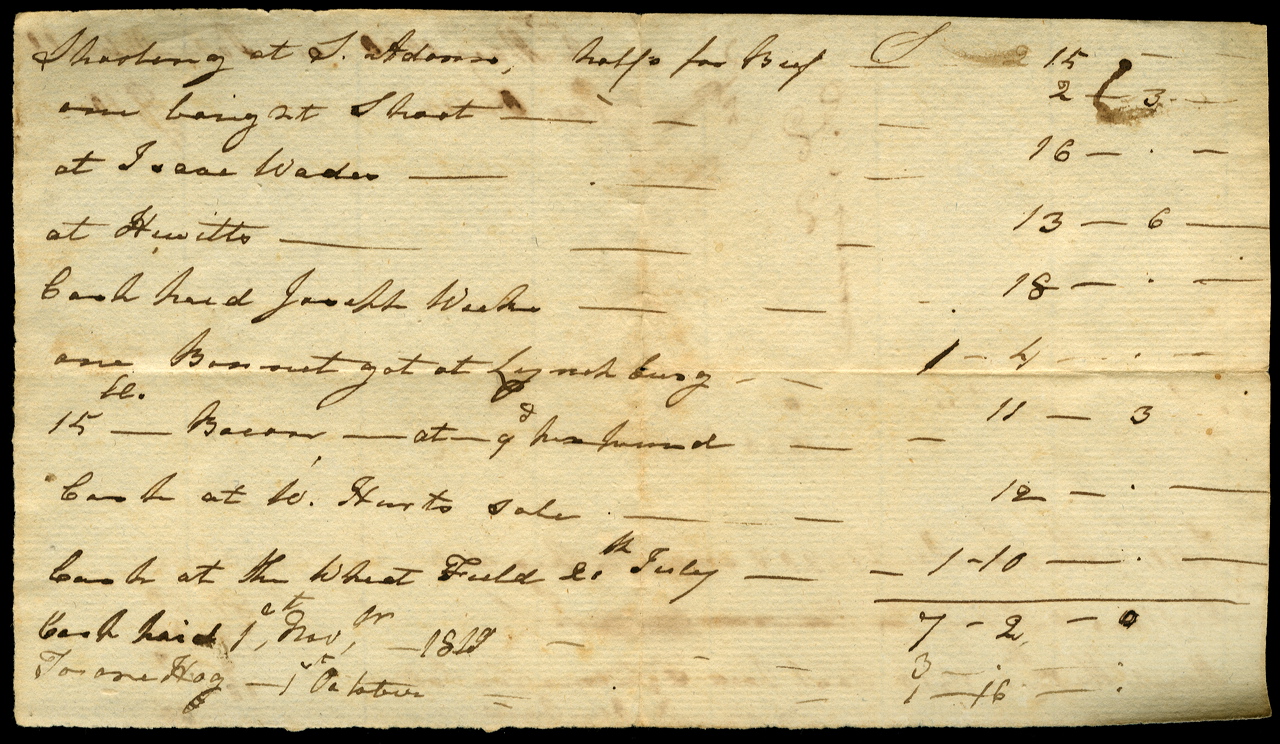 Shooting at S. Adams, half for Beef — S 15 —
one baigst Shoot — — — 2 — 3 —
at Isaac Wades — . — — 16 — . —
at Hewitts — — — 13 — 6 —
Cash paid Joseph Weeks — — . 18 — . —
one Bonnet got at Lynchburg - — 1 - 4 - . —
15 lb. — Bacon — at — 9d per pound — — 11 — 3
Cash at W. Hurts sale . — — 12 — . —
Cash at the Wheat Field 20th July — — 1 - 10 — . —
7 - 2 - 0
Cash paid 1st, Nov,r — 1819 — - — 3 — . — .
To one Hog — 1st October — — 1 — 16 — .